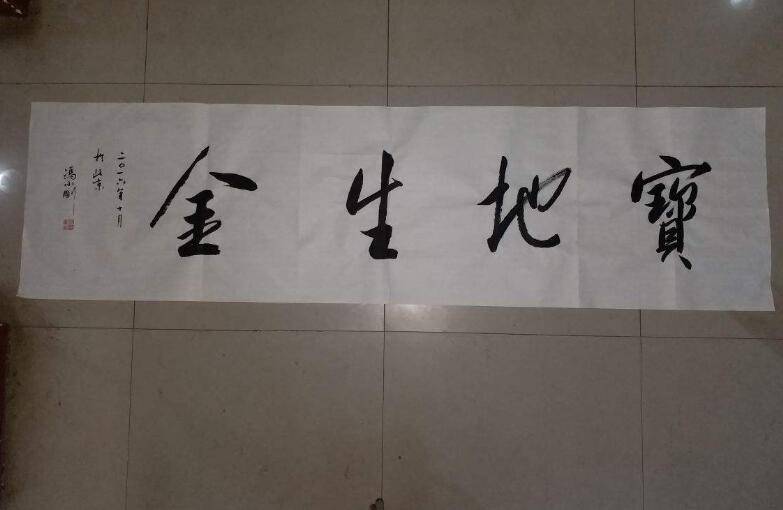 寶地生金
二〇一六年十月
於北京
馮小剛